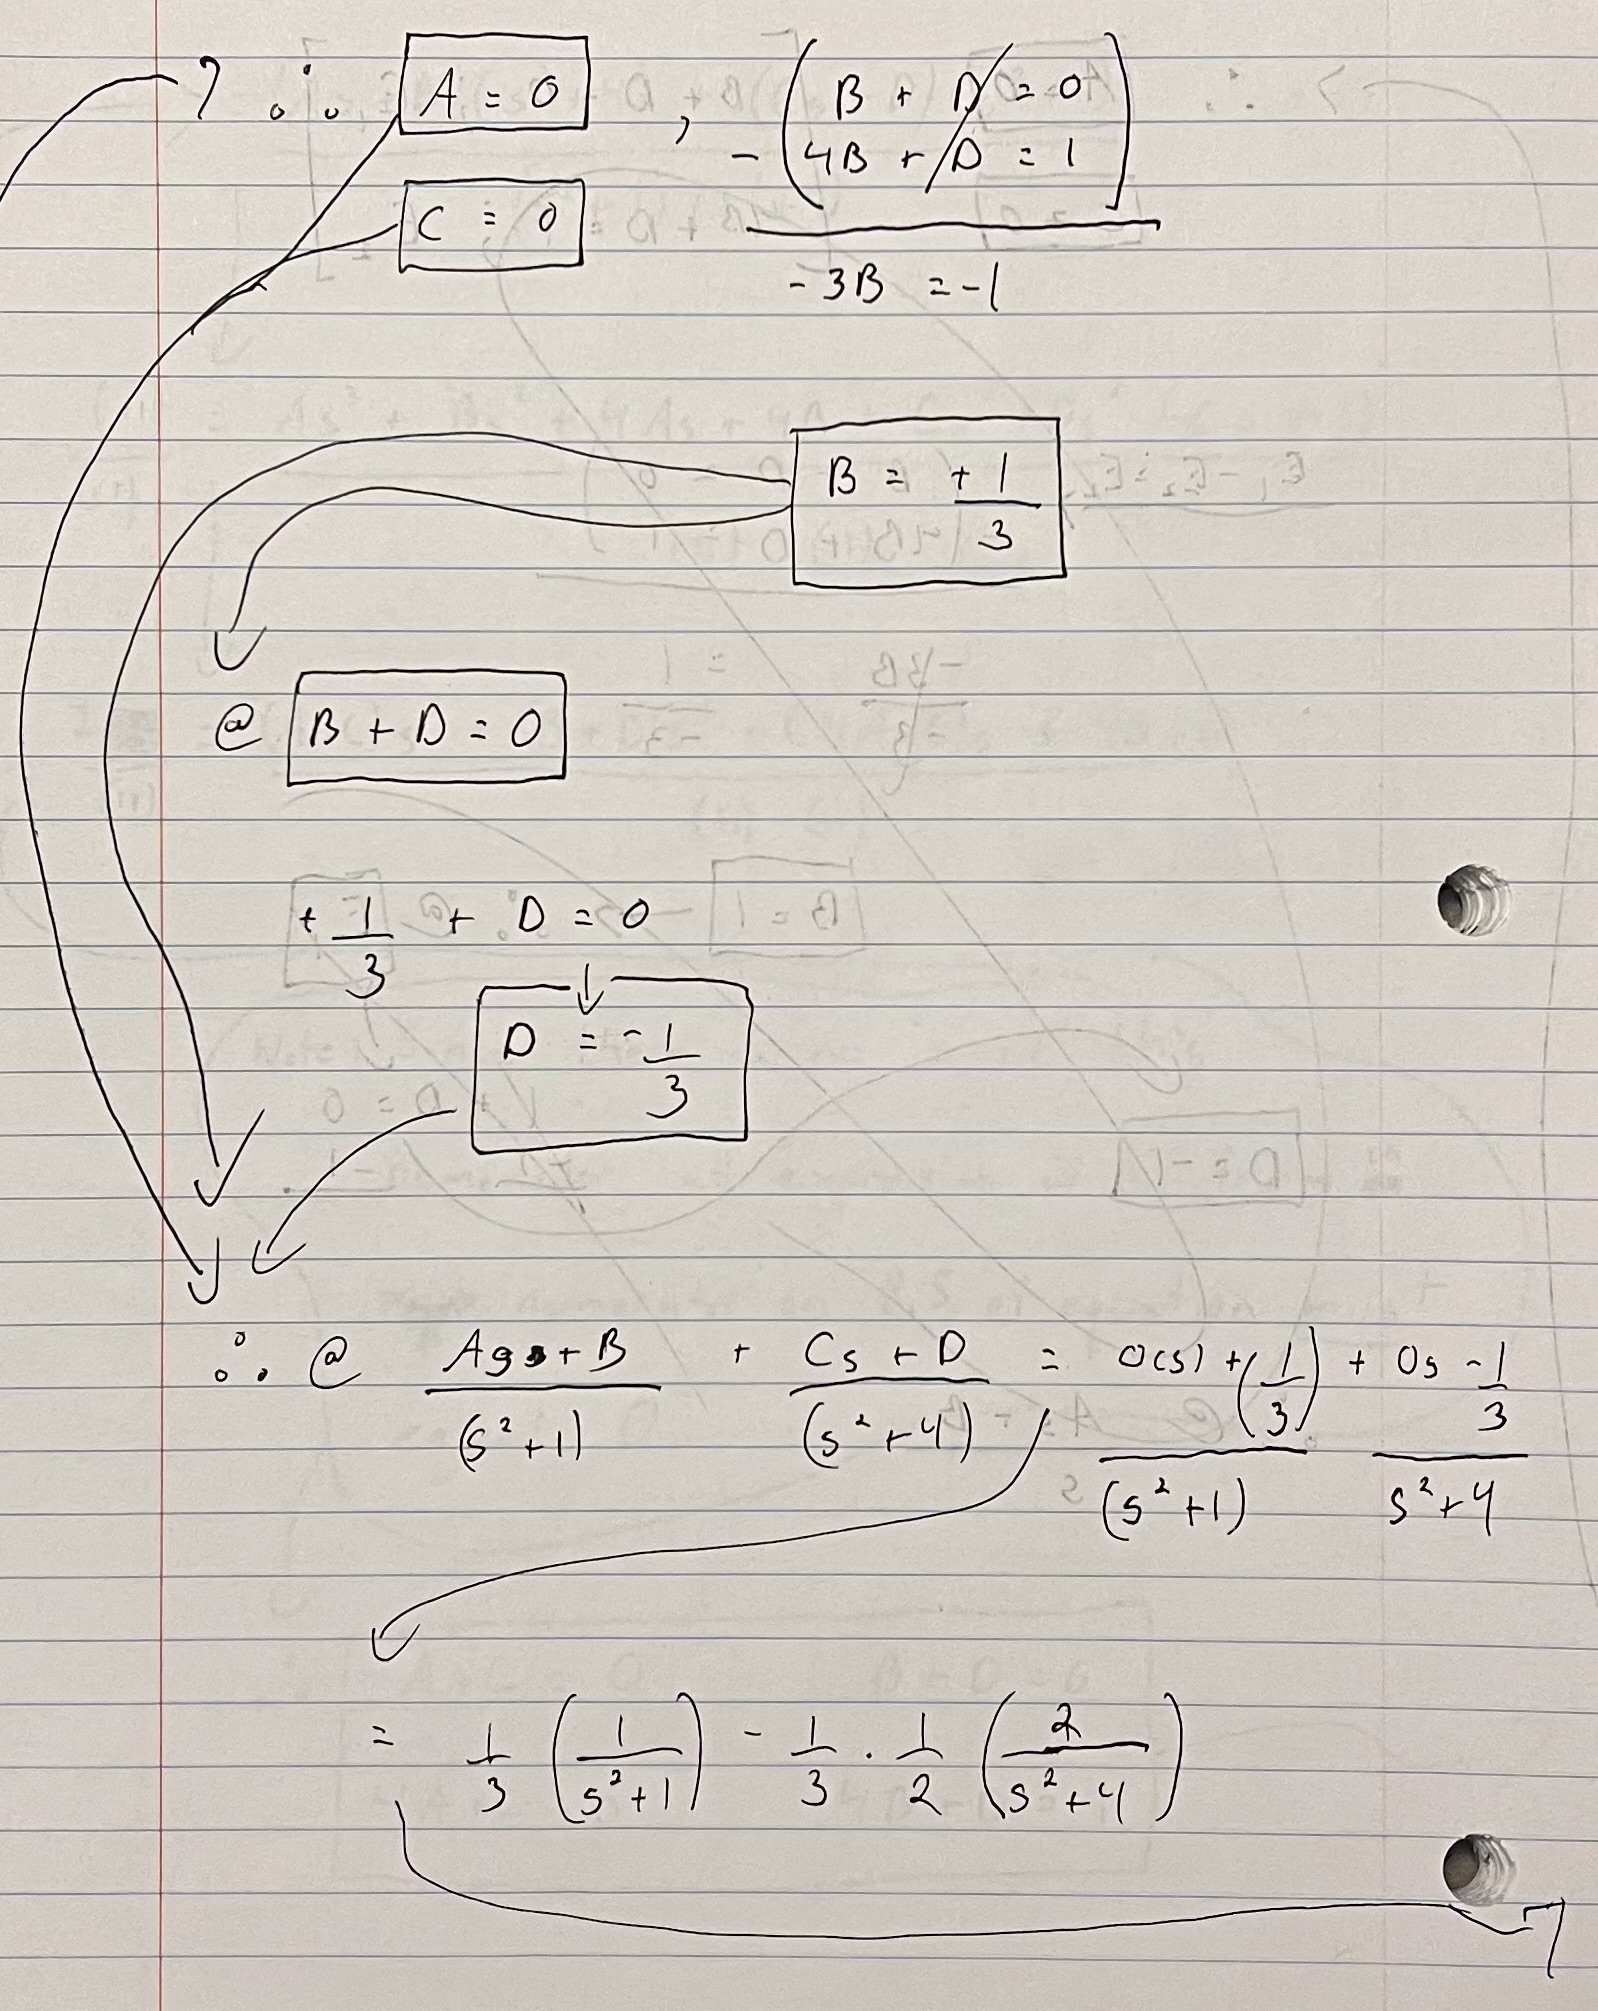 ∴ A = 0 , B + D = 0
C = 0 - ( 4B + D = 1 )
-3B = -1
B = +1/3
@ B + D = 0
+ 1/3 + D = 0
D = -1/3
∴ @ As + B / (s² + 1) + Cs + D / (s² + 4) = 0(s) + (1/3) / (s² + 1) + 0s - 1/3 / s² + 4
= 1/3 ( 1 / s² + 1 ) - 1/3 · 1/2 ( 2 / s² + 4 )